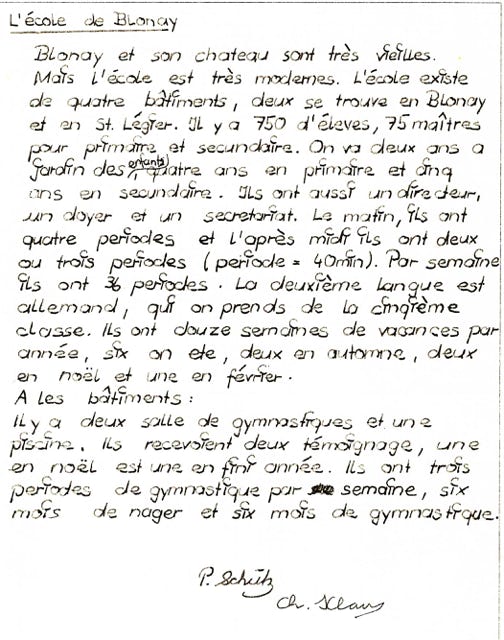 L'école de Blonay
Blonay et son chateau sont très vieilles.
Mais l'école est très modernes. L'école existe
de quatre bâtiments, deux se trouve en Blonay
et en St. Légier. Il y a 750 d'éleves, 75 maîtres
pour primaire et secundaire. On va deux ans a
jardin des enfants, quatre ans en primaire et cinq
ans en secundaire. Ils ont aussi un directeur,
un doyer et un secretariat. Le matin, ils ont
quatre periodes et l'après midi ils ont deux
ou trois periodes (periode = 40min). Par semaine
ils ont 36 periodes. La deuxième langue est
allemand, qui on prends de la cinqième
classe. Ils ont douze semaines de vacances par
année, six on ete, deux en automne, deux
en noël et une en février.
A les bâtiments:
Il y a deux salle de gymnastiques et une
piscine. Ils recevoient deux témoignage, une
en noël est une en fini année. Ils ont trois
periodes de gymnastique par semaine, six
mois de nager et six mois de gymnastique.
P. Schütz
Ch.